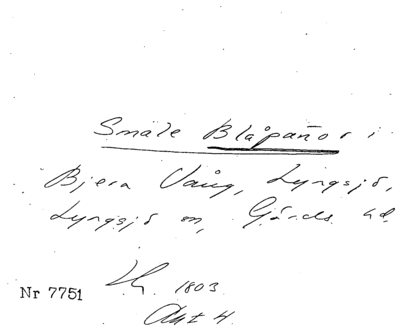 Smale Blåpañor i
Bjera Vång, Lyngsjö,
Lyngsjö sn, Gärds hd.
Nr 7751
1803
Akt 4